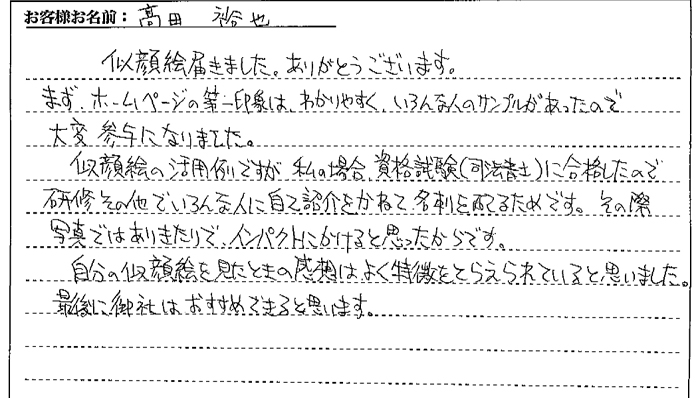 お客様お名前：髙田 裕也
似顔絵届きました。ありがとうございます。
まず、ホームページの第一印象は、わかりやすく、いろんな人のサンプルがあったので
大変参考になりました。
似顔絵の活用例ですが、私の場合、資格試験(司法書士)に合格したので
研修その他でいろんな人に自己紹介をかねて名刺を配るためです。その際
写真ではありきたりで、インパクトにかけると思ったからです。
自分の似顔絵を見たときの感想は、よく特徴をとらえられていると思いました。
最後に御社はおすすめできると思います。